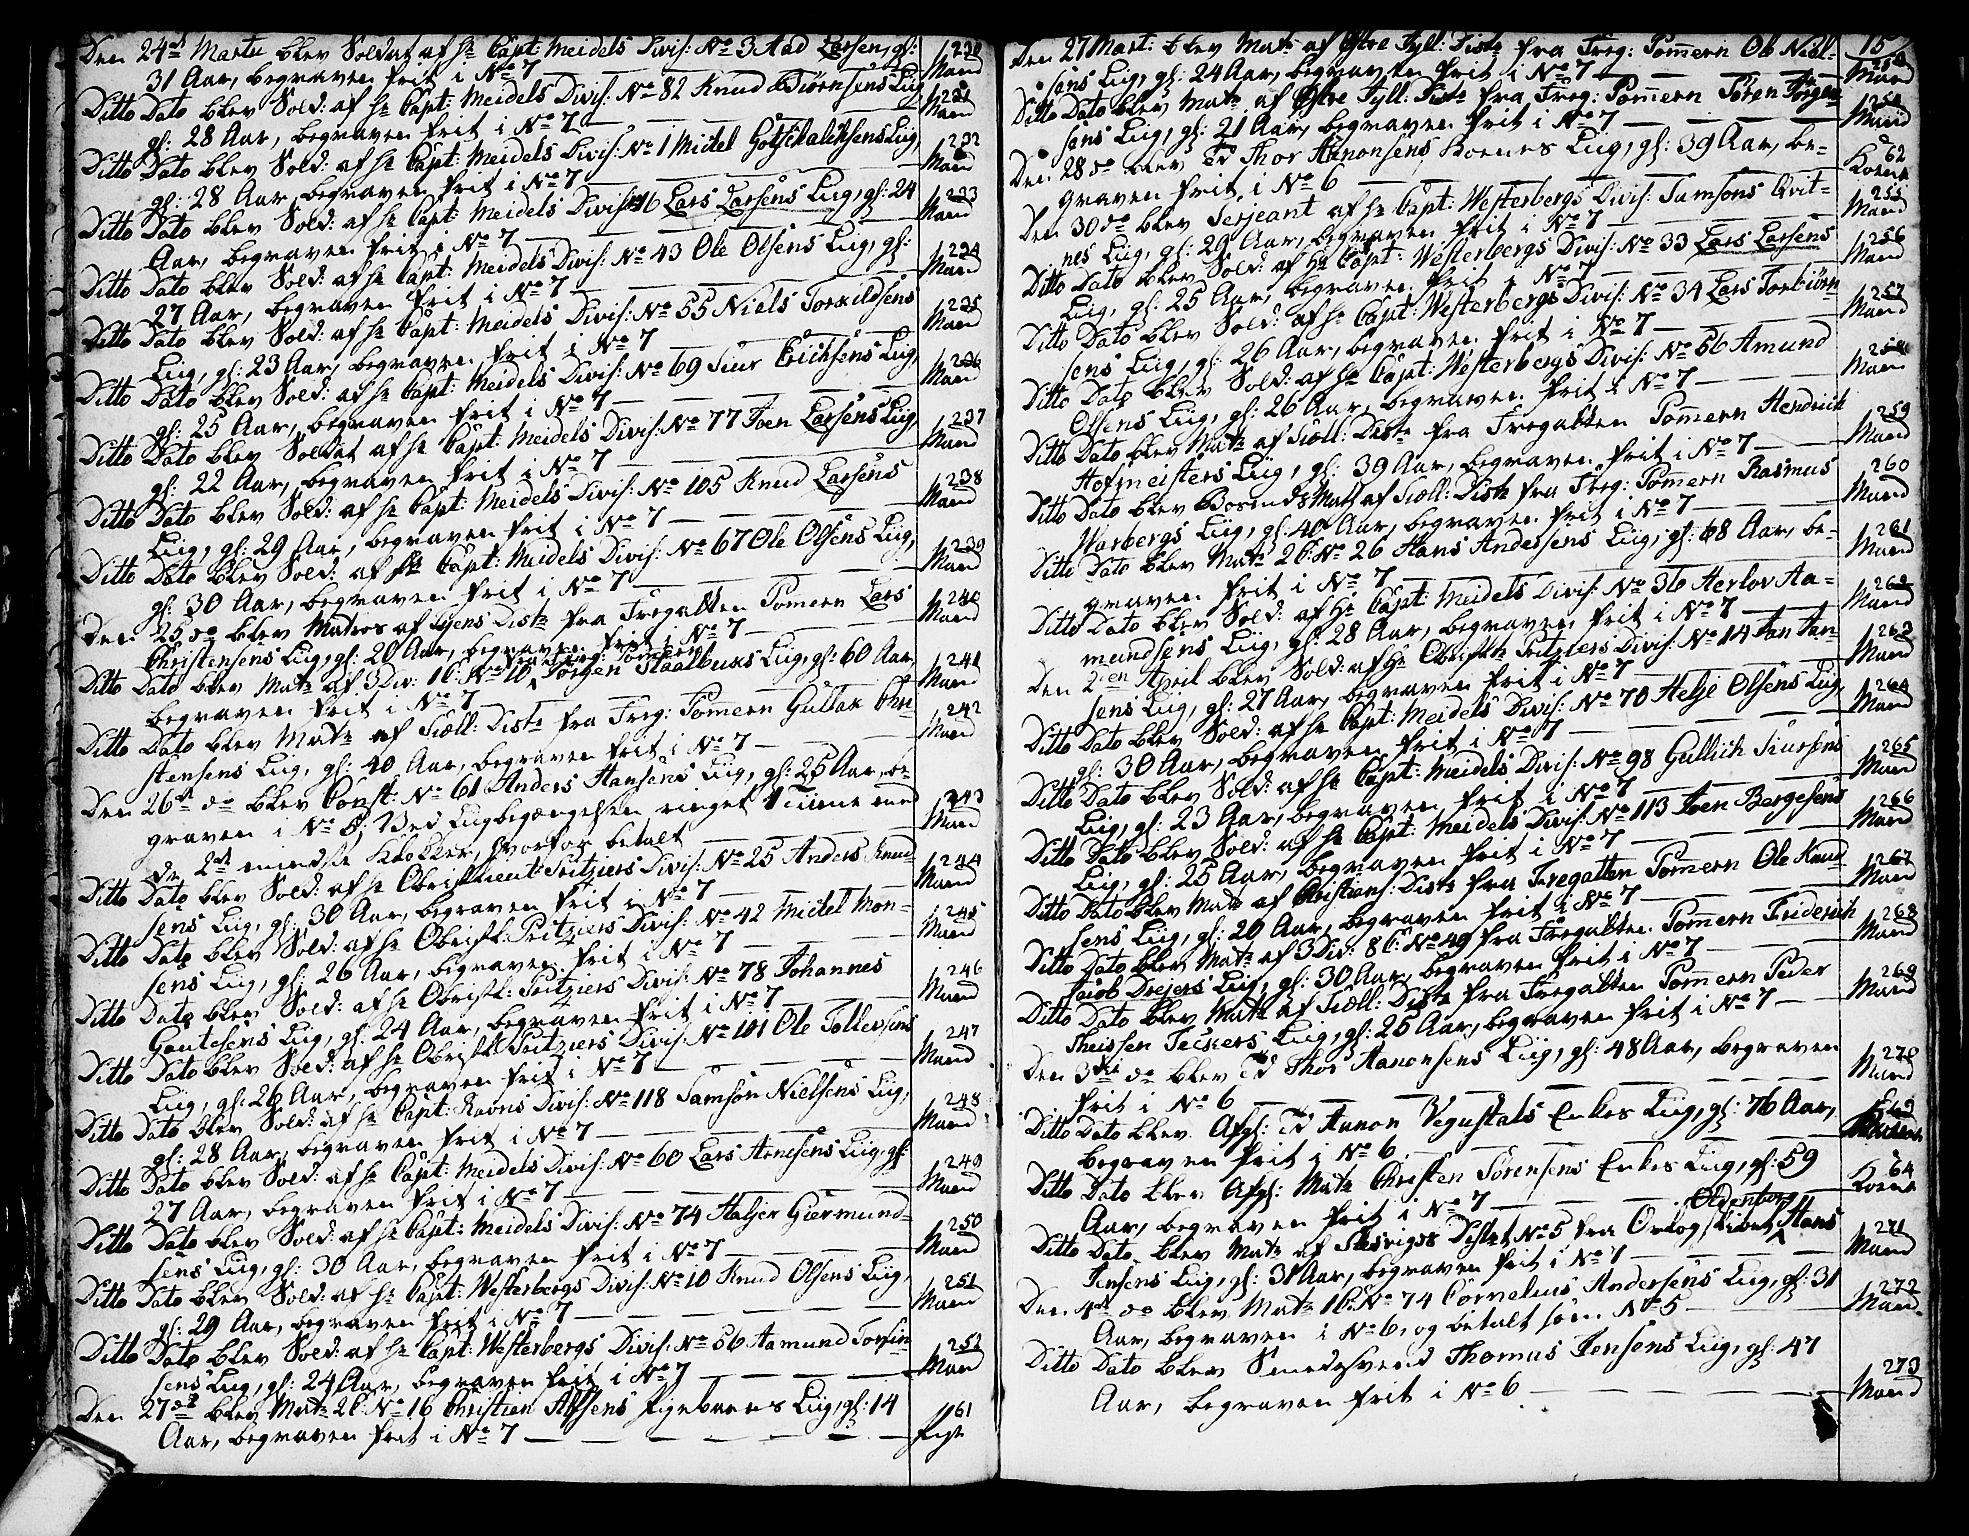 Den 24de Martii blev Soldat af Hr Capt: Meidels Divis: No 3 Aad Larsen, gl:
230
31 Aar, begraven frit i No 7
Mand
Ditto Dato blev Sold: af Hr Capt: Meidels Divis: No 82 Knud Biørnsens Liig,
231
gl: 28 Aar, begraven frit i No 7
Mand
Ditto Dato blev Sold: af Hr Capt: Meidels Divis: No 1 Michel Gotschalchsens Liig,
232
gl: 28 Aar, begraven frit i No 7
Mand
Ditto Dato blev Sold: af Hr Capt: Meidels Divis: 16 Lars Larsens Liig, gl: 24
233
Aar, begraven frit i No 7
Mand
Ditto Dato blev Sold: af Hr Capt: Meidels Divis: No 43 Ole Olsens Liig, gl:
234
27 Aar, begraven frit i No 7
Mand
Ditto Dato blev Sold: af Hr Capt: Meidels Divis: No 55 Niels Torkildsens
235
Liig, gl: 23 Aar, begraven frit i No 7
Mand
Ditto Dato blev Sold: af Hr Capt: Meidels Divis: No 69 Siur Erichsens Liig,
236
gl: 25 Aar, begraven frit i No 7
Mand
Ditto Dato blev Soldat af Hr Capt: Meidels Divis: No 77 Joen Larsens Liig,
237
gl: 22 Aar, begraven frit i No 7
Mand
Ditto Dato blev Sold: af Hr Capt: Meidels Divis: No 105 Knud Larsens
238
Liig, gl: 29 Aar, begraven frit i No 7
Mand
Ditto Dato blev Sold: af Hr Capt: Meidels Divis: No 67 Ole Olsens Liig,
239
gl: 30 Aar, begraven frit i No 7
Mand
Den 25 do blev Matros af Fyens Distr fra Fregatten Pomern Lars
240
Christensens Liig, gl: 20 Aar, begraven frit i No 7
Mand
fra Freg: Pomern
Ditto Dato blev Matr af 3 Div: 1 C: No 10, Jørgen Staalbuks Liig, gl: 60 Aar,
241
begraven frit i No 7
Mand
Ditto Dato blev Matr af Siæll: Distr fra Freg: Pomern Gullak Chri-
242
stensens Liig, gl: 40 Aar, begraven frit i No 7
Mand
Den 26de do blev Const: No 61 Anders Hansens Liig, gl: 25 Aar, be-
243
graven i No 5; Ved Liigbegængelsen ringet 1 Time med
Mand
de 2de mindste Klokker, hvorfor betalt
Ditto Dato blev Sold: af Hr Obristlieut: Fritziers Divis: No 25 Anders Knud-
244
sens Liig, gl: 30 Aar, begraven frit i No 7
Mand
Ditto Dato blev Sold: af Hr Obristl: Fritziers Divis: No 42 Michel Mon-
245
sens Liig, gl: 26 Aar, begraven frit i No 7
Mand
Ditto Dato blev Sold: af Hr Obristl: Fritziers Divis: No 78 Johannes
246
Gautesens Liig, gl: 24 Aar, begraven frit i No 7
Mand
Ditto Dato blev Sold: af Hr Obristl: Fritziers Divis: No 101 Ole Tollevsens
247
Liig, gl: 26 Aar, begraven frit i No 7
Mand
Ditto Dato blev Sold: af Hr Capt: Ravns Divis: No 118 Samson Nielsens Liig,
248
gl: 28 Aar, begraven frit i No 7
Mand
Ditto Dato blev Sold: af Hr Capt: Meidels Divis: No 60 Lars Arnesens Liig, gl:
249
27 Aar, begraven frit i No 7
Mand
Ditto Dato blev Sold: af Hr Capt: Meidels Divis: No 74 Haljer Giermund-
250
sens Liig, gl: 30 Aar, begraven frit i No 7
Mand
Ditto Dato blev Sold: af Hr Capt: Westerbergs Divis: No 10 Knud Olsens Liig,
251
gl: 29 Aar, begraven frit i No 7
Mand
Ditto Dato blev Sold: af Hr Capt: Westerbergs Divis: No 56 Aamund Torsin-
252
sens Liig, gl: 24 Aar, begraven frit i No 7
Mand
Den 27de blev Matr 2 C: No 16 Christian Alfsens Pigebarns Liig, gl: 14
61
Aar, begraven frit i No 7
Pige
15
Den 27 Mart: blev Matr af Østre Jyll: Distr fra Freg: Pomern Ole Niel-
253
sens Liig, gl: 24 Aar, begraven frit i No 7
Mand
Ditto Dato blev Matr af Østre Jyll: Distr fra Freg: Pomern Søren Jørgen-
254
sens Liig, gl: 21 Aar, begraven frit i No 7
Mand
Den 28 do blev Td Thor Aanonsens Koenes Liig, gl: 39 Aar, be-
62
graven frit i No 6
Koene
Den 30 do blev Serjeant af Hr Capt: Westerbergs Divis: Samsons Qvit-
255
nes Liig, gl: 29 Aar, begraven frit i No 7
Mand
Ditto Dato blev Sold: af Hr Capt: Westerbergs Divis: No 33 Lars Larsens
256
Liig, gl: 25 Aar, begraven frit i No 7
Mand
Ditto Dato blev Sold: af Hr Capt: Westerbergs Divis: No 34 Lars Torbiørn-
257
sens Liig, gl: 26 Aar, begraven frit i No 7
Mand
Ditto Dato blev Sold: af Hr Capt: Westerbergs Divis: No 56 Amund
258
Olsens Liig, gl: 26 Aar, begraven frit i No 7
Mand
Ditto Dato blev Matr af Siæll: Distr fra Fregatten Pomern Hendrich
259
Hofmeisters Liig, gl: 39 Aar, begraven frit i No 7
Mand
Ditto Dato blev Bosmands Matt af Siæll: Distr fra Freg: Pomern Rasmus
260
Warbergs Liig, gl: 40 Aar, begraven frit i No 7
Mand
Ditto Dato blev Matr 2 C: No 26 Hans Andersens Liig, gl: 68 Aar, be-
261
graven frit i No 7
Mand
Ditto Dato blev Sold: af Hr Capt: Meidels Divis: No 36 Herlov Aa-
262
mundsens Liig, gl: 28 Aar, begraven frit i No 7
Mand
Den 2en April blev Sold: af Hr Obristlt Fritziers Divis: No 14 Jan Jan-
263
sens Liig, gl: 27 Aar, begraven frit i No 7
Mand
Ditto Dato blev Sold: af Hr Capt: Meidels Divis: No 70 Helje Olsens Liig,
264
gl: 30 Aar, begraven frit i No 7
Mand
Ditto Dato blev Sold: af Hr Capt: Meidels Divis: No 98 Gullich Siursens
265
Liig, gl: 23 Aar, begraven frit i No 7
Mand
Ditto Dato blev Sold: af Hr Capt: Meidels Divis: No 113 Joen Bergesens
266
Liig, gl: 25 Aar, begraven frit i No 7
Mand
Ditto Dato blev Matr af Christians: Distr fra Fregatten Pomern Ole Knud-
267
sens Liig, gl: 20 Aar, begraven frit i No 7
Mand
Ditto Dato blev Matr af 3 Div: 8 C: No 49 fra Fregatten Pomern Friderich
268
Jacob Drejers Liig, gl: 30 Aar, begraven frit i No 7
Mand
Ditto Dato blev Matr af Siæll: Distr fra Fregatten Pomern Peder
269
Theissen Teckers Liig, gl: 25 Aar, begraven frit i No 7
Mand
Den 3die do blev Td Thor Aanonsens Liig, gl: 48 Aar, begraven
270
frit i No 6
Mand
Ditto Dato blev Afgl: Td Aanon Vegustals Enkes Liig, gl: 76 Aar,
63
begraven frit i No 6
Ditto Dato blev Afgl: Matr Christen Sørensens Enkes Liig, gl: 59
64
Aar, begraven frit i No 7
Koene
Oldenborg
Ditto Dato blev Matr af Slesvigs Distrt No 5 fra Orlog Skibet Hans
271
Jensens Liig, gl: 31 Aar, begraven frit i No 7
Mand
Den 4de do blev Matr 1 C: No 74 Cornelius Andersens Liig, gl: 31
272
Aar, begraven i No 6, og betalt som No 5
Mand
Ditto Dato blev Smedesvend Thomas Jensens Liig, gl: 47
273
Aar, begraven frit i No 6
Mand